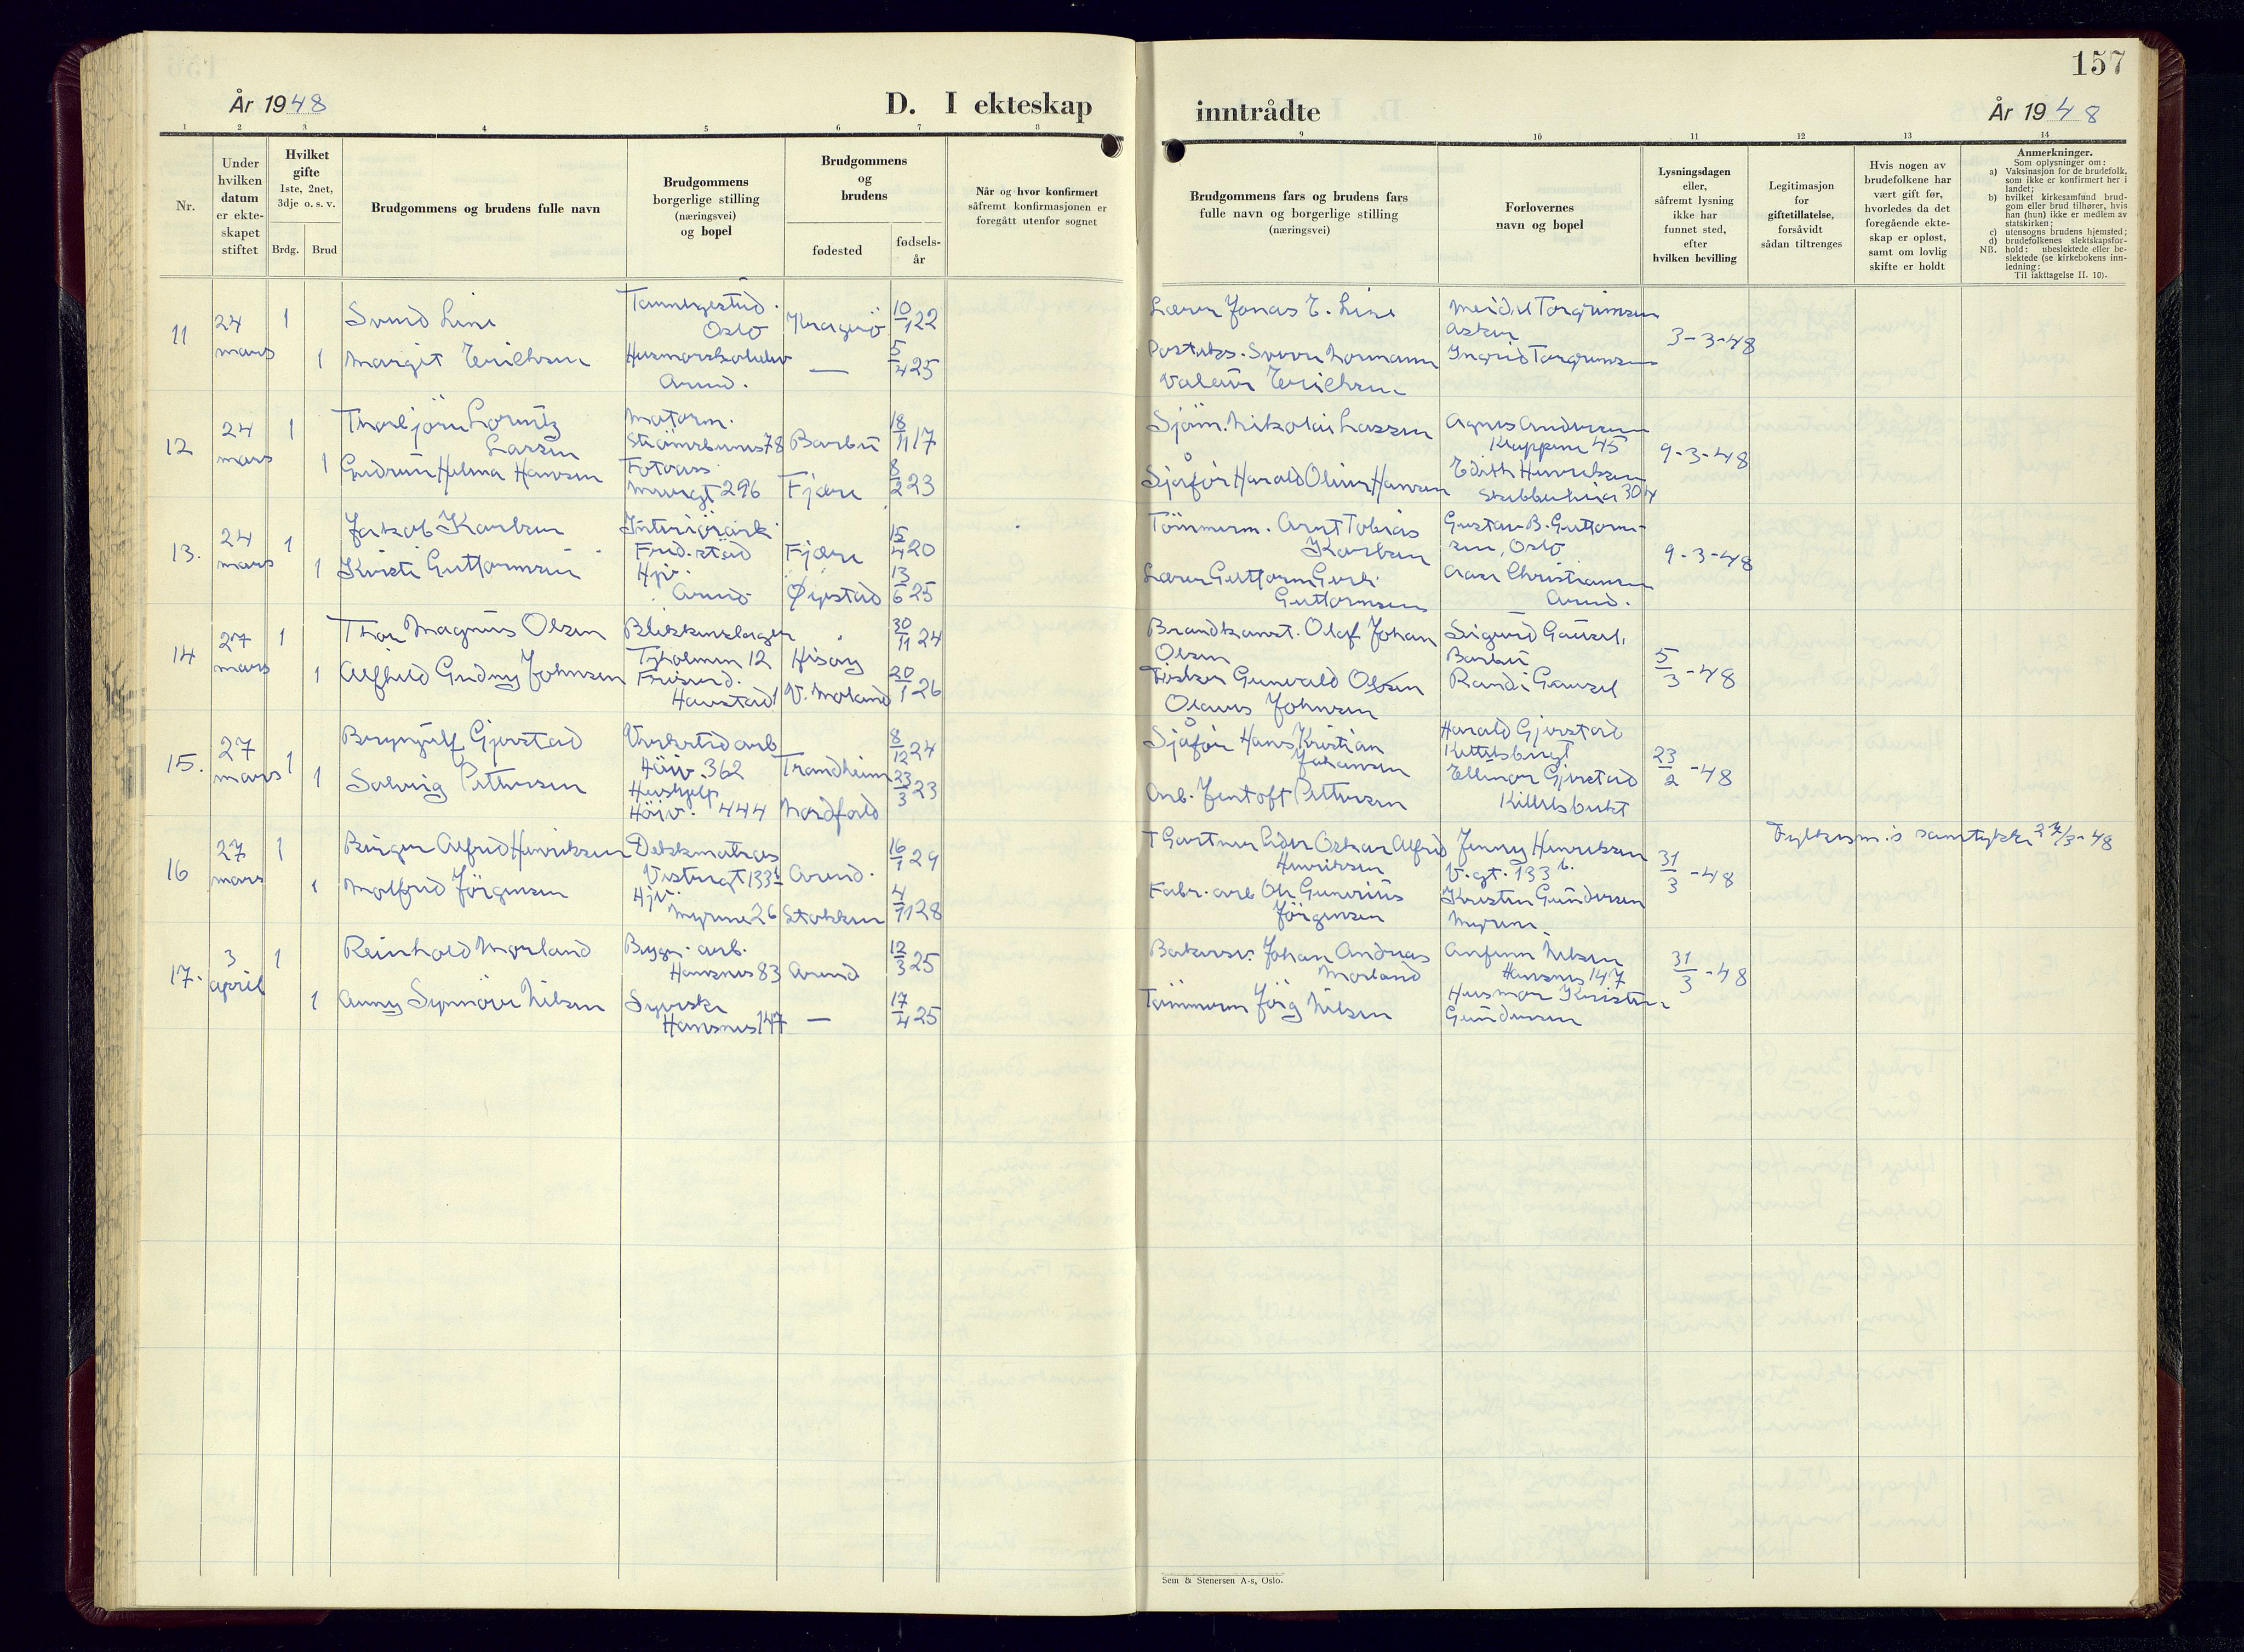 157
År 1948
D. I ekteskap
inntrådte
År 1948
1 2 3 4 5 6 7 8 9 10 11 12 13 14
Nr.
Under
hvilken
datum
er ekte-
skapet
stiftet
Hvilket
gifte
1ste, 2net,
3dje o. s. v.
Brdg. Brud
Brudgommens og brudens fulle navn
Brudgommens
borgerlige stilling
(næringsvei)
og bopel
Brudgommens
og
brudens
fødested
fødsels-
år
Når og hvor konfirmert
såfremt konfirmasjonen er
foregått utenfor sognet
Brudgommens fars og brudens fars
fulle navn og borgerlige stilling
(næringsvei)
Forlovernes
navn og bopel
Lysningsdagen
eller,
såfremt lysning
ikke har
funnet sted,
efter
hvilken bevilling
Legitimasjon
for
giftetillatelse,
forsåvidt
sådan tiltrenges
Hvis nogen av
brudefolkene har
vært gift før,
hvorledes da det
foregående ekte-
skap er opløst,
samt om lovlig
skifte er holdt
Anmerkninger.
Som oplysninger om:
a) Vaksinasjon for de brudefolk,
som ikke er konfirmert her i
landet;
b) hvilket kirkesamfund brud-
gom eller brud tilhører, hvis
han (hun) ikke er medlem av
statskirken;
c) utensogns brudens hjemsted;
d) brudefolkenes slektskapsfor-
hold: ubeslektede eller be-
NB. slektede (se kirkebokens inn-
ledning:
Til iakttagelse II. 10).
11
24
mars
1
Svend Line
Oslo
Kragerø
10/1 22
Lærer Jonas E. Line
Torgrimsen
Asker
3-3-48
1
Margit Erichsen
Arend.
—
5/4 25
Ingrid Torgrimsen
Erichsen
12
24
mars
1
Thorbjörn Lorentz
Larsen
Motorm.
Strömsbunes 78
Barbu
18/11 17
Sjöm. Nikolai Larssen
Agnes Andersen
Kloppene 45
9-3-48
1
Gudrun Helma Hansen
Fotoass.
296
Fjære
8/2 23
Sjåfør Harald Oliver Hansen
Edith Henriksen
304
13.
24
mars
1
Jakob Karlsen
Interiörark.
Fred.stad
Fjære
15/4 20
Tömmerm. Arnt Tobias
Karlsen
Gustav B. Guttorm-
sen, Oslo
9-3-48
1
Kirsti Guttormsen
Hjv.
Arend.
Øyestad
13/6 25
Lærer Guttorm
Guttormsen
Christiansen
Arend.
14
27
mars
1
Thor Magnus Olsen
Tyholmen 12
Hisøy
30/11 24
Brandkonst. Olaf Johan
Olsen
Sigurd Gausel,
Barbu
5/3-48
1
Alfhild Gudny Johnsen
Friserd.
Havstad
V. Moland
20/1 26
Fisker Gunvald Olsen
Olaus Johnsen
Randi Gausel
15.
27
mars
1
Brynjulf Gjerstad
Verksted arb
Höiv. 362
Trondheim
8/12 24
Sjåfør Hans Kristian
Johansen
Harald Gjerstad
Kittelsbugt
23/2-48
1
Solveig Pettersen
Hushjelp
Höiv. 444
Nordfold
23/3 23
Arb. Jentoft Pettersen
Ellinor Gjerstad
Kittelsbukt
16
27
mars
1
Birger Alfred Henriksen
Dekksmatros
Vestregt 133 b
Arend.
16/1 29
Gartner Peder Oskar Alfred
Henriksen
Jenny Henriksen
V. gt. 133 b.
31/3-48
Fylkesm.s samtykke 27/3-48
1
Molfrid Jörgensen
Hjv.
Myrene 26
Stokken
4/11 28
Fabr. arb Ole Gunerius
Jörgensen
Kristen Gundersen
Myrene.
17.
3
april
1
Reinhold Morland
Bygn. arb.
Hansnes 83
Arend
12/3 25
Bakersv. Johan Andreas
Morland
Arfinn Nilsen
Hansnes 147
31/3-48
1
Anny Synnöve Nilsen
Syerske
Hansnes 147
—
17/4 25
Tömmerm Jörg Nilsen
Husmor Kristine
Gundersen
Sem & Stenersen A-s, Oslo.